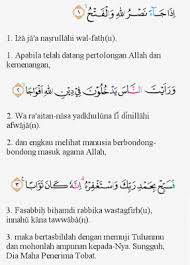 إِذَا جَآءَ نَصْرُ اللّٰهِ وَالْفَتْحُ ۙ ١
1. Iżā jā'a naṣrullāhi wal-fatḥ(u).
1. Apabila telah datang pertolongan Allah dan
kemenangan,
وَرَاَيْتَ النَّاسَ يَدْخُلُوْنَ فِيْ دِيْنِ اللّٰهِ اَفْوَاجًا ۙ ٢
2. Wa ra'aitan-nāsa yadkhulūna fī dīnillāhi
afwājā(n).
2. dan engkau melihat manusia berbondong-
bondong masuk agama Allah,
فَسَبِّحْ بِحَمْدِ رَبِّكَ وَاسْتَغْفِرْهُ ۗ اِنَّهٗ كَانَ تَوَّابًا ٣
3. Fasabbiḥ biḥamdi rabbika wastagfirh(u),
innahū kāna tawwābā(n).
3. maka bertasbihlah dengan memuji Tuhanmu
dan mohonlah ampunan kepada-Nya. Sungguh,
Dia Maha Penerima Tobat.